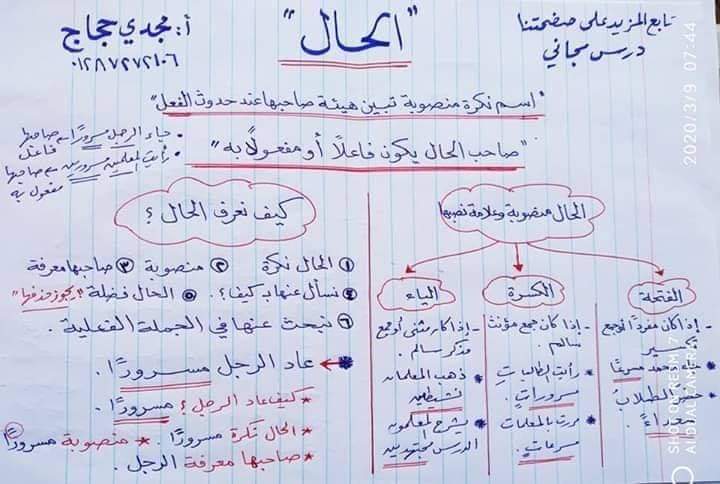 تابع المزيد على صفحتنا
درس مجاني
"الحال"
أ: مجدي حجاج
٠١٢٨٧٢٧٢١٠٦
"اسم نكرة منصوبة تبين هيئة صاحبها عند حدوث الفعل"
"صاحب الحال يكون فاعلاً أو مفعولاً به"
• جاء الرجل مسرورًا صاحبها
فاعل
• رأيت المعلمين مسرورين صاحبها
مفعول به
الحال منصوبة وعلامة نصبها
الفتحة
- إذا كان مفردًا أو جمع
تكسير
محمد مسرعًا
الطلاب
سعداءً.
الكسرة
- إذا كان جمع مؤنث
سالم.
* رأيت الطالباتِ
مسروراتٍ.
* مررت بالمعلمات
مسرعاتٍ.
الياء
- إذا كان مثنى أو جمع
مذكر سالم.
* ذهب المعلمان
نشيطين
* يشرح المعلمون
الدرس مجتهدين
كيف نعرف الحال؟
① الحال نكرة ② منصوبة ③ صاحبها معرفة
④ نسأل عنها بـ كيف؟. ⑤ الحال فضلة "يجوز حذفها"
⑥ نبحث عنها في الجملة الفعلية.
* ← عاد الرجل مسرورًا.
* كيف عاد الرجل؟ مسرورًا.
* الحال نكرة مسرورًا. * منصوبة مسرورًا
* صاحبها معرفة الرجل.
2020/3/9 07:44
AI QUAD CAMERA